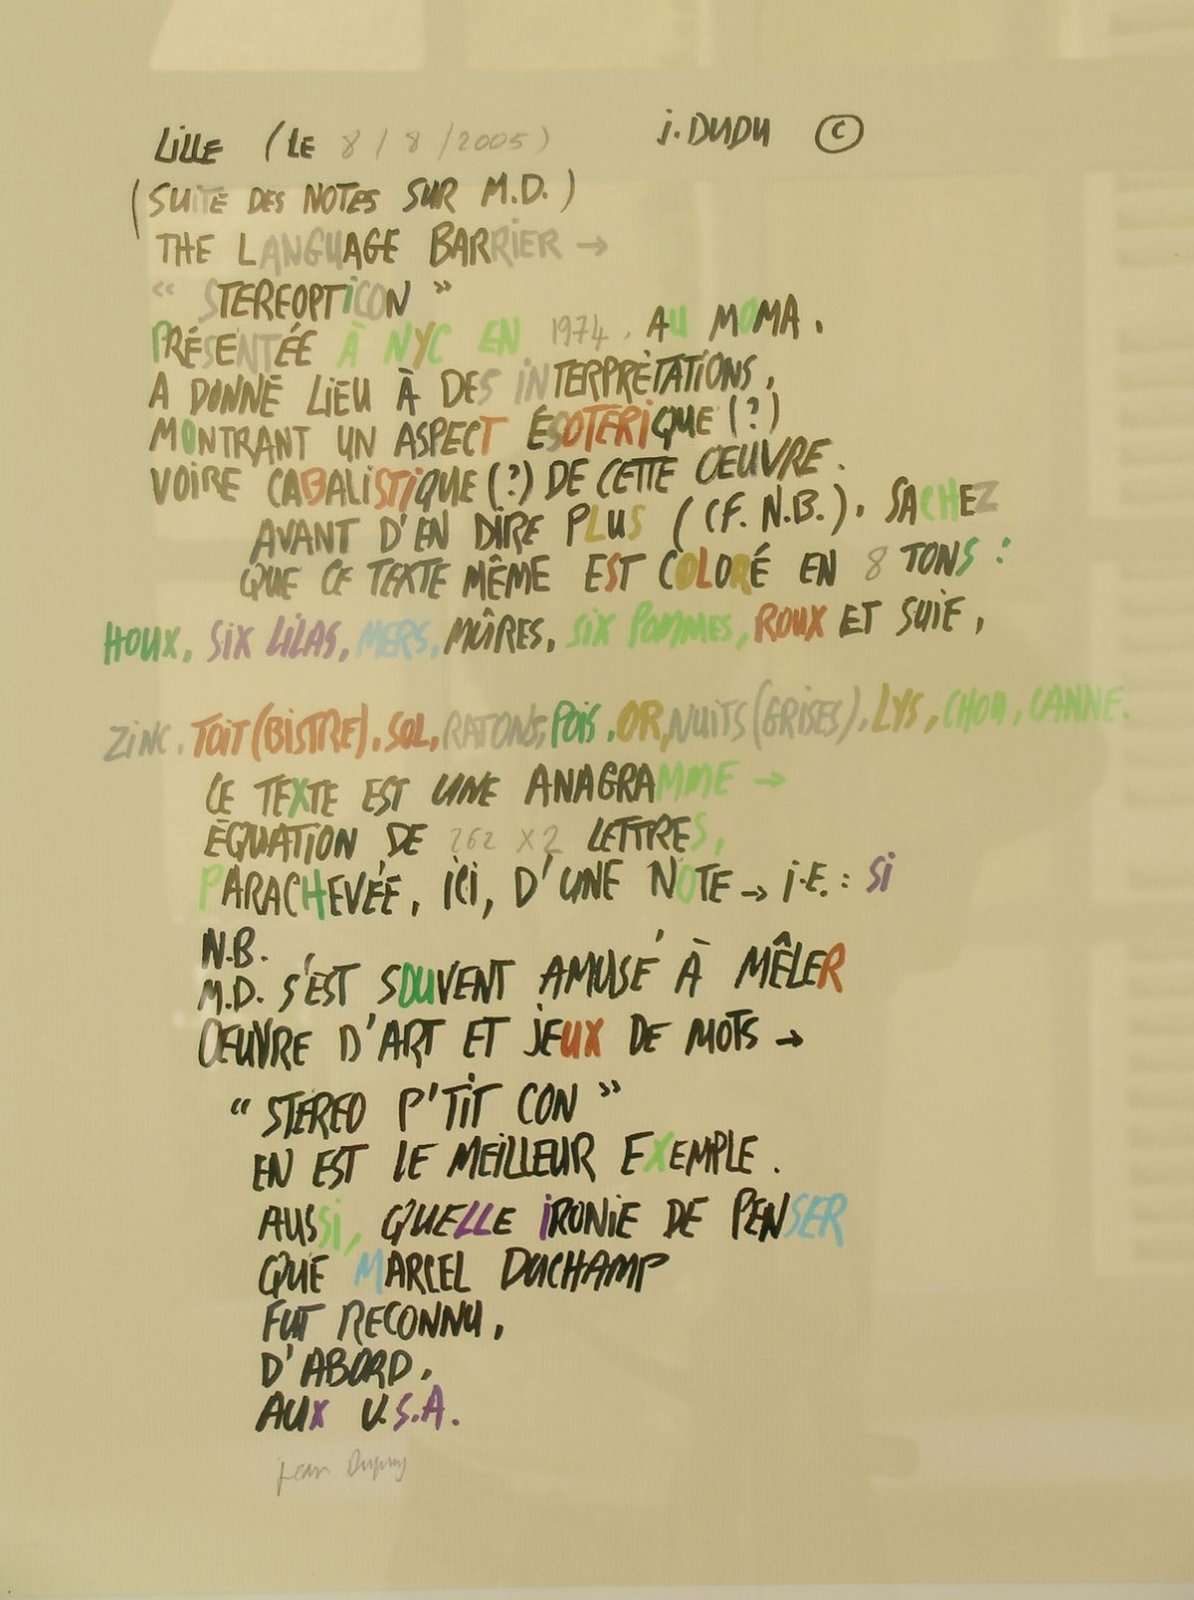 LILLE (LE 8/8/2005) J. DUDU ©
(SUITE DES NOTES SUR M.D.)
THE LANGUAGE BARRIER →
“ STEREOPTICON ”
PRÉSENTÉE À NYC EN 1974, AU MOMA,
A DONNÉ LIEU À DES INTERPRÉTATIONS,
MONTRANT UN ASPECT ÉSOTÉRIQUE (?)
VOIRE CABALISTIQUE (?) DE CETTE ŒUVRE.
AVANT D'EN DIRE PLUS (CF. N.B.), SACHEZ
QUE CE TEXTE MÊME EST COLORÉ EN 8 TONS :
HOUX, SIX LILAS, MERS, MÛRES, SIX POMMES, ROUX ET SUIE,
ZINC, TOIT (BISTRE), SOL, RATONS, POIS, OR, NUITS (GRISES), LYS, CHOU, CANNE.
CE TEXTE EST UNE ANAGRAMME →
ÉQUATION DE 262 X 2 LETTRES,
PARACHEVÉE, ICI, D'UNE NOTE → I.E. : SI
N.B.
M.D. S'EST SOUVENT AMUSÉ À MÊLER
ŒUVRE D'ART ET JEUX DE MOTS →
“ STÉRÉO P'TIT CON ”
EN EST LE MEILLEUR EXEMPLE.
AUSSI, QUELLE IRONIE DE PENSER
QUE MARCEL DUCHAMP
FUT RECONNU,
D'ABORD,
AUX U.S.A.
Jean Dupuy